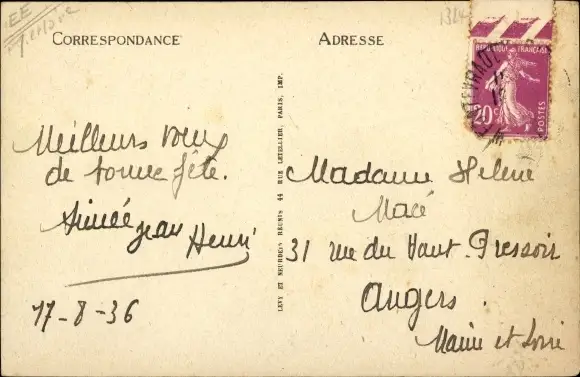 CORRESPONDANCE
ADRESSE
REPUBLIQUE FRANÇAISE
20c
POSTES
Meilleurs voeux
de bonne fête.
Aimée Jean Henri
17-8-36
LEVY ET NEURDEIN REUNIS 44 RUE LETELLIER, PARIS, IMP.
Madame Helene
Macé
31 rue du Haut-Pressoir
Angers.
Maine et Loire